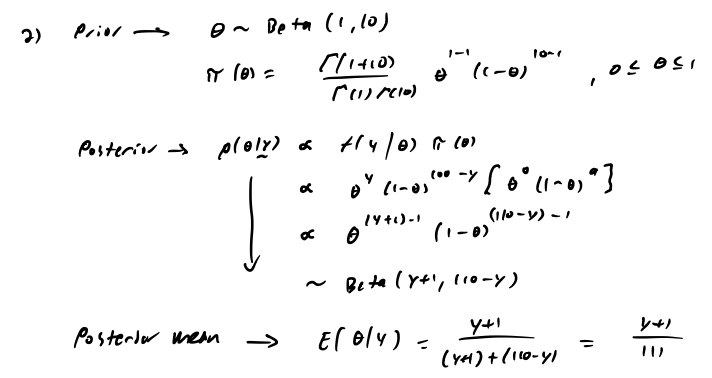 2) Prior → θ ~ Beta (1, 10)
π(θ) = Γ(1+10) / Γ(1) Γ(10) θ^{1-1} (1-θ)^{10-1} , 0 ≤ θ ≤ 1
Posterior → p(θ|y) ∝ f(y|θ) π(θ)
∝ θ^y (1-θ)^{100-y} [θ^0 (1-θ)^9]
∝ θ^{(y+1)-1} (1-θ)^{(110-y)-1}
~ Beta (y+1, 110-y)
Posterior mean → E[θ|y) = y+1 / (y+1)+(110-y) = y+1 / 111